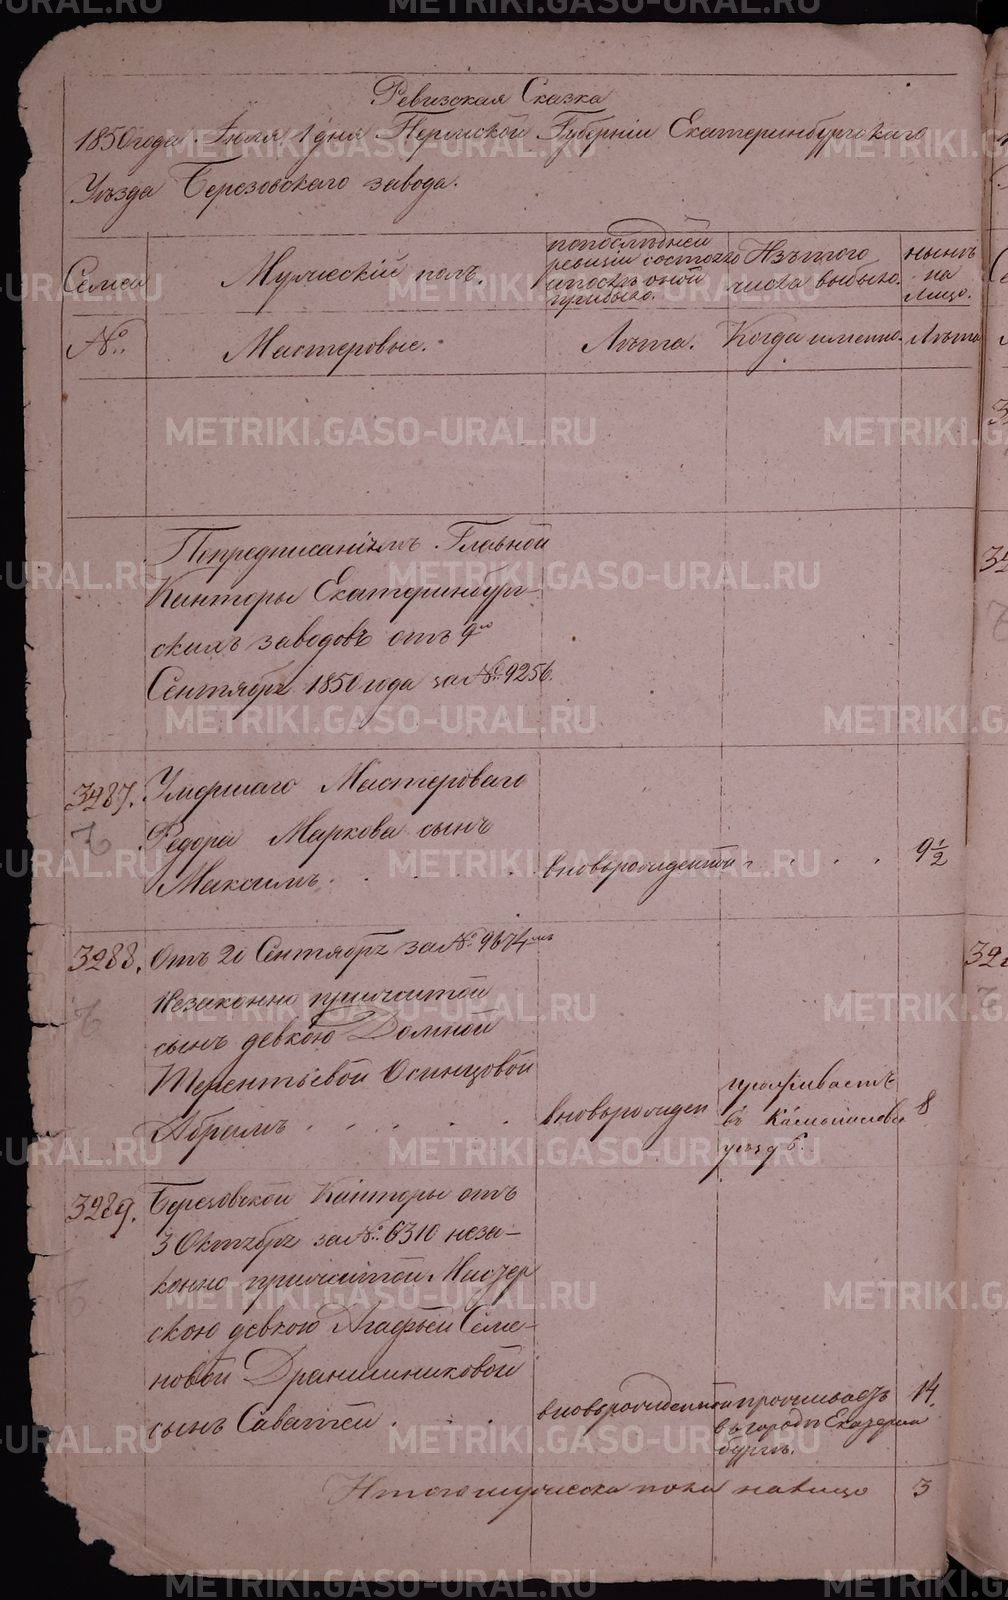 Ревизская Сказка
1850 года Iюля 1 дня Пермской Губернiи Екатеринбургскаго
Уѣзда Березовскаго завода.
Семьи
Мужескiй полъ.
по последней
ревизiи состояло
и послѣ оной
прибыло.
Изъ того
числа выбыло.
нынѣ
на
лицо.
№.
Мастеровые.
Лѣта.
Когда именно.
Лѣта
Попредписанiемъ Главной
Канторы Екатеринбург-
скихъ заводовъ отъ 9го
Сентября 1850 года за № 9256.
3287.
Умершаго Мастероваго
Федора Маркова сынъ
Максимъ
вноворожденной
9 1/2
3288.
Отъ 20 Сентября за № 9674мъ
Незаконно прижитой
сынъ девкою Домной
Терентьевой Осинцовой
Абрамъ
вноворожден
проживаетъ
въ Камышлов
уездѣ.
8
3289.
Березовской Канторы отъ
3 Октября за №. 6310 неза-
конно прижитой Мастер
скою девкою Агафьей Семе-
новой Дранишниковой
сынъ Саватей
вноворожденной
проживаетъ
въ городѣ Екатерин
бургѣ.
14.
Итого мужеска пола налицо 3
METRIKI.GASO-URAL.RU